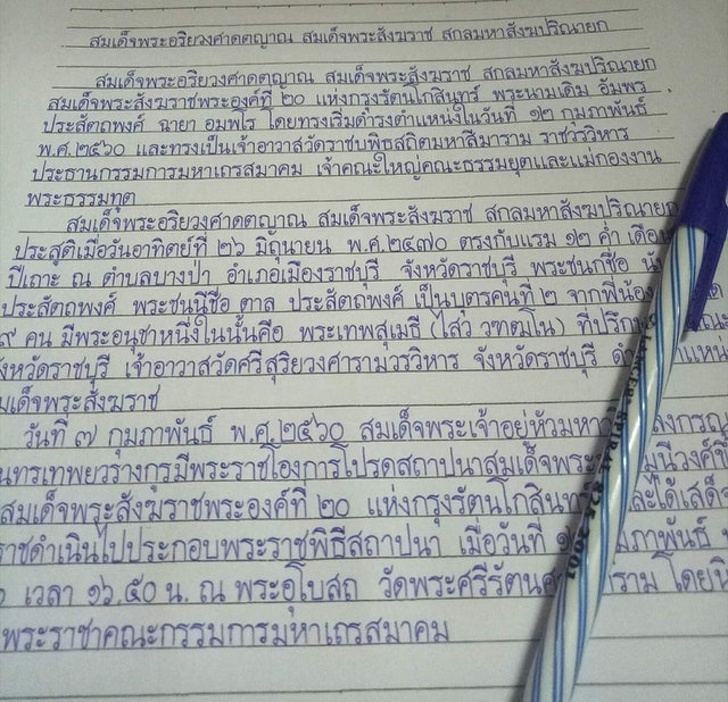 สมเด็จพระอริยวงศาคตญาณ สมเด็จพระสังฆราช สกลมหาสังฆปริณายก
สมเด็จพระอริยวงศาคตญาณ สมเด็จพระสังฆราช สกลมหาสังฆปริณายก
สมเด็จพระสังฆราชพระองค์ที่ ๒๐ แห่งกรุงรัตนโกสินทร์ พระนามเดิม อัมพร
ประสัตถพงศ์ ฉายา อมฺพโร โดยทรงเริ่มดำรงตำแหน่งในวันที่ ๑๒ กุมภาพันธ์
พ.ศ.๒๕๖๐ และทรงเป็นเจ้าอาวาสวัดราชบพิธสถิตมหาสีมาราม ราชวรวิหาร
ประธานกรรมการมหาเถรสมาคม เจ้าคณะใหญ่คณะธรรมยุตและแม่กองงาน
พระธรรมทูต
สมเด็จพระอริยวงศาคตญาณ สมเด็จพระสังฆราช สกลมหาสังฆปริณายก
ประสูติเมื่อวันอาทิตย์ที่ ๒๖ มิถุนายน พ.ศ.๒๔๗๐ ตรงกับแรม ๑๒ ค่ำ เดือน
ปีเถาะ ณ ตำบลบางป่า อำเภอเมืองราชบุรี จังหวัดราชบุรี พระชนกชื่อ
ประสัตถพงศ์ พระชนนีชื่อ ตาล ประสัตถพงศ์ เป็นบุตรคนที่ ๒ จากพี่น้อง
๙ คน มีพระอนุชาหนึ่งในนั้นคือ พระเทพสุเมธี (ไสว วฑฺฒโน) ที่ปรึกษา
จังหวัดราชบุรี เจ้าอาวาสวัดศรีสุริยวงศารามวรวิหาร จังหวัดราชบุรี
มเด็จพระสังฆราช
วันที่ ๗ กุมภาพันธ์ พ.ศ.๒๕๖๐ สมเด็จพระเจ้าอยู่หัวมหา ลงกรณ
นทรเทพยวรางกูรมีพระราชโองการโปรดสถาปนาสมเด็จพระ มุนีวงศ์
สมเด็จพระสังฆราชพระองค์ที่ ๒๐ แห่งกรุงรัตนโกสินทร์ และได้เสด็จ
ราชดำเนินไปประกอบพระราชพิธีสถาปนา เมื่อวันที่ มภาพันธ์
เวลา ๑๖.๕๐ น. ณ พระอุโบสถ วัดพระศรีรัตน าราม โดย
พระราชาคณะกรรมการมหาเถรสมาคม